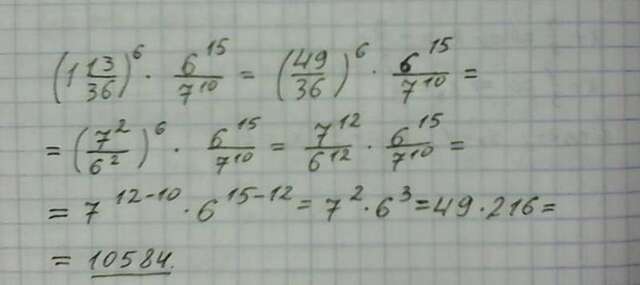 (1 13/36)^6 · 6^15/7^10 = (49/36)^6 · 6^15/7^10 =
= (7^2/6^2)^6 · 6^15/7^10 = 7^12/6^12 · 6^15/7^10 =
= 7^12-10 · 6^15-12 = 7^2 · 6^3 = 49 · 216 =
= 10584.